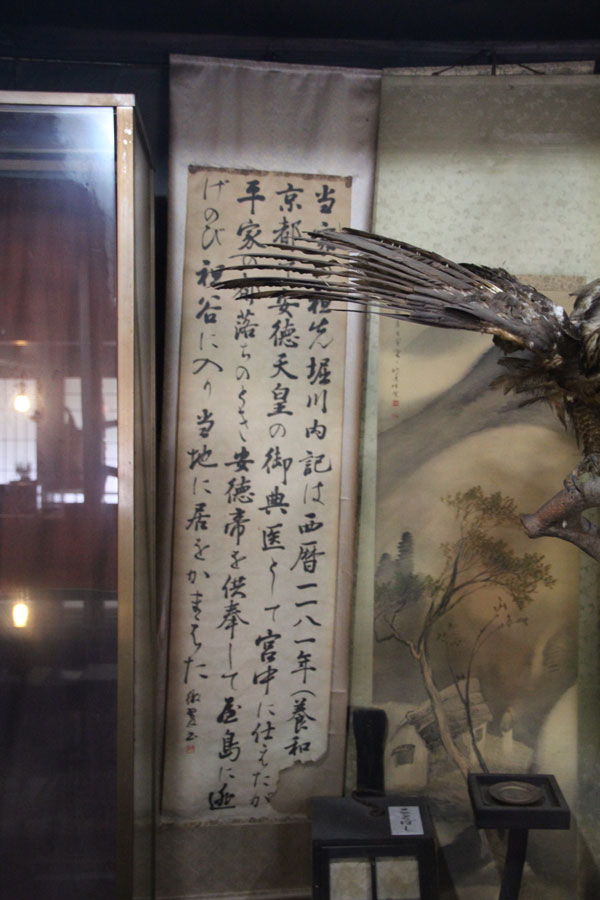 当家の祖先堀川内記は西暦一一八一年(養和
京都で安徳天皇の御典医として宮中に仕えたが
平家の都落ちのとき安徳帝を供奉して屋島に逃
げのび祖谷に入り当地に居をかまえた